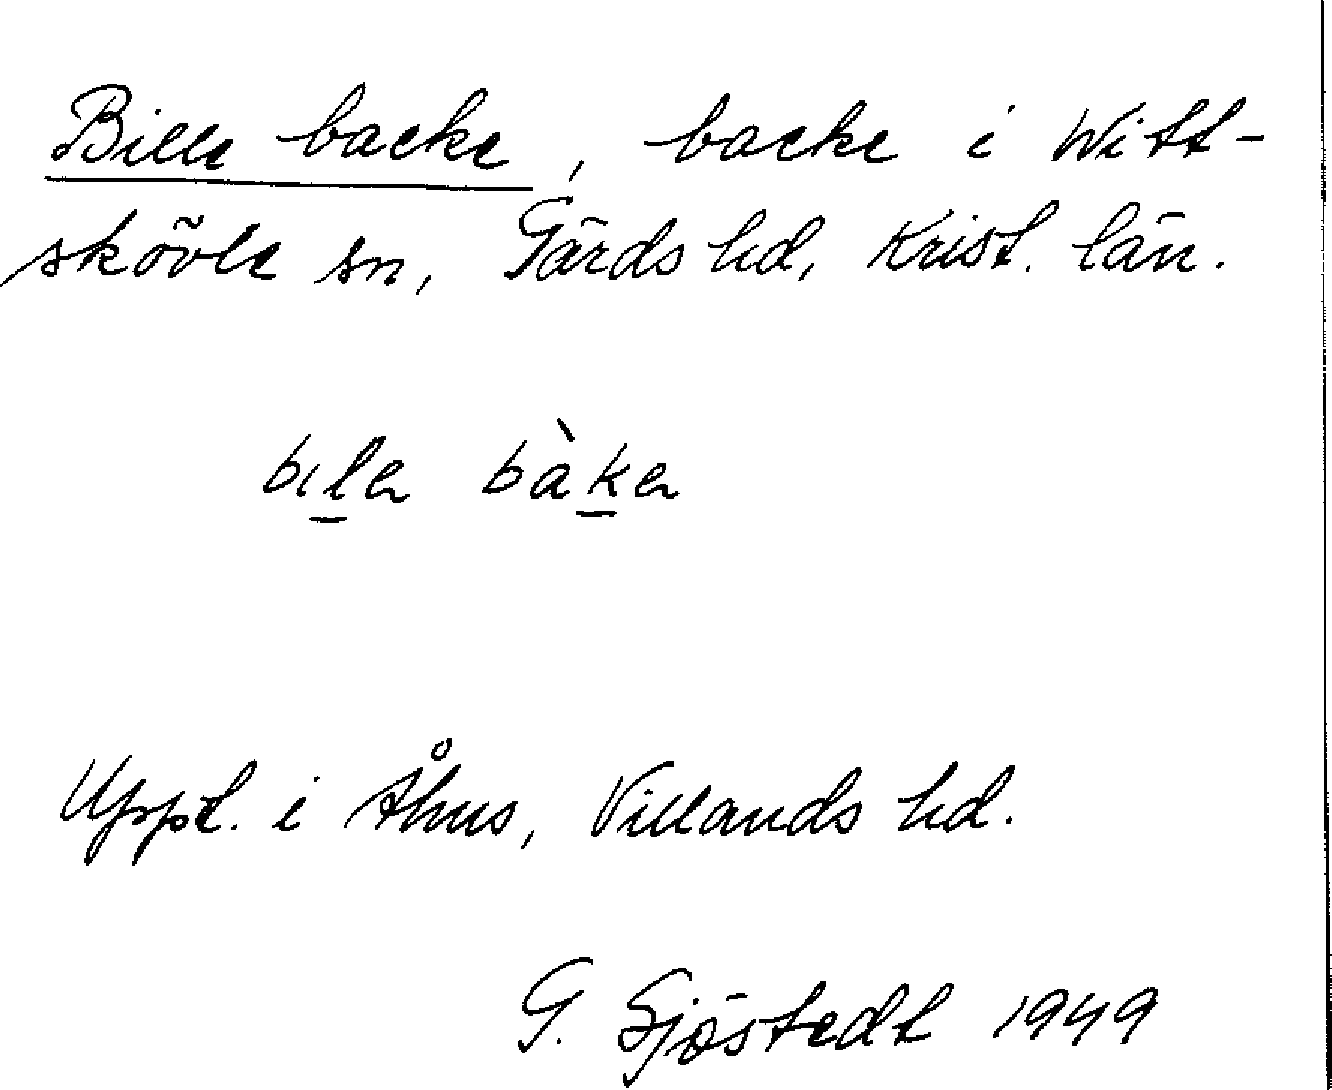 Bille backe, backe i Witt-
skövle sn, Gärds hd, Krist. län.
bɪlər bàkər
Uppt. i Åhus, Villands hd.
G. Sjöstedt 1949